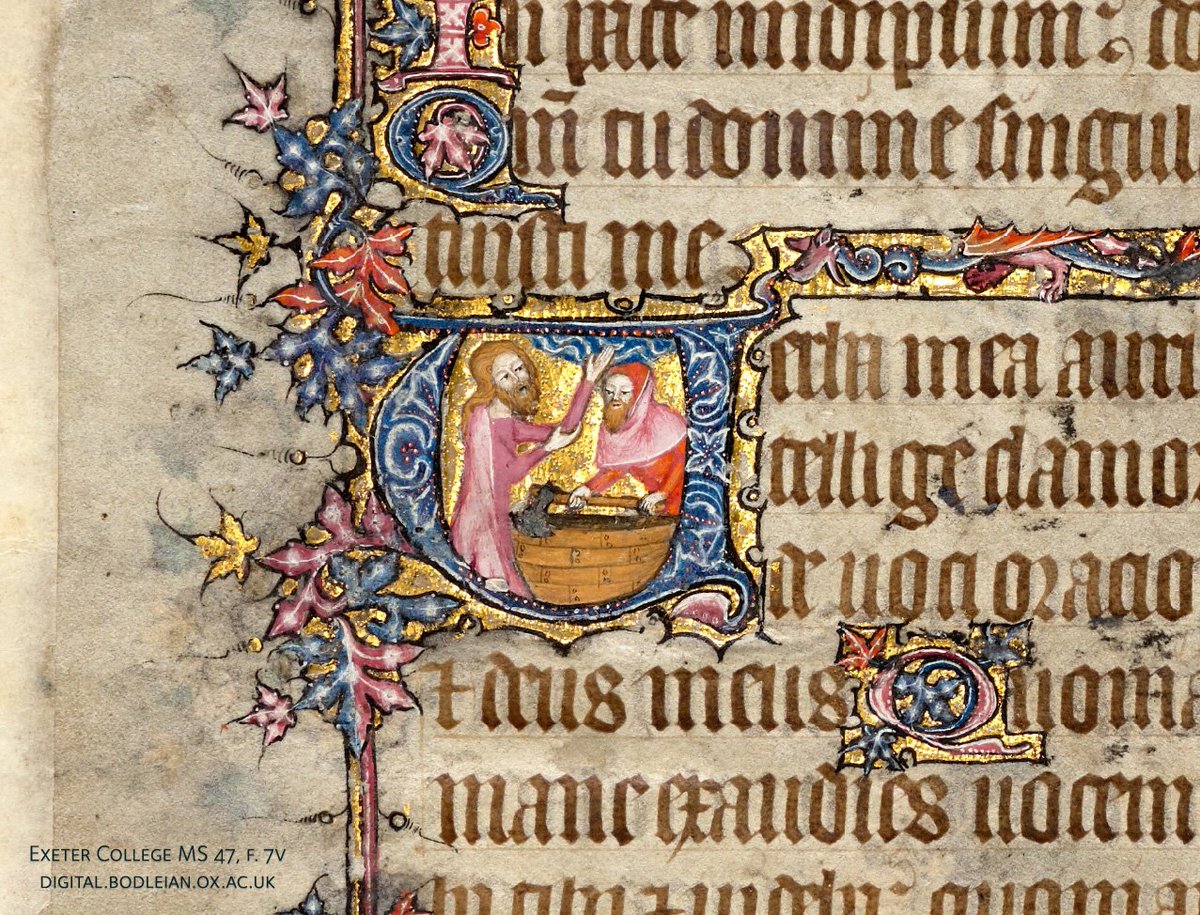 In pace in idipsum: do
Qm̄ tu domine singul
tuisti me
Verba mea auri
tellige clamo
de uoci oracio
⁊ deus meus Quonia
mane exaudies uocem
EXETER COLLEGE MS 47, F. 7V
DIGITAL.BODLEIAN.OX.AC.UK